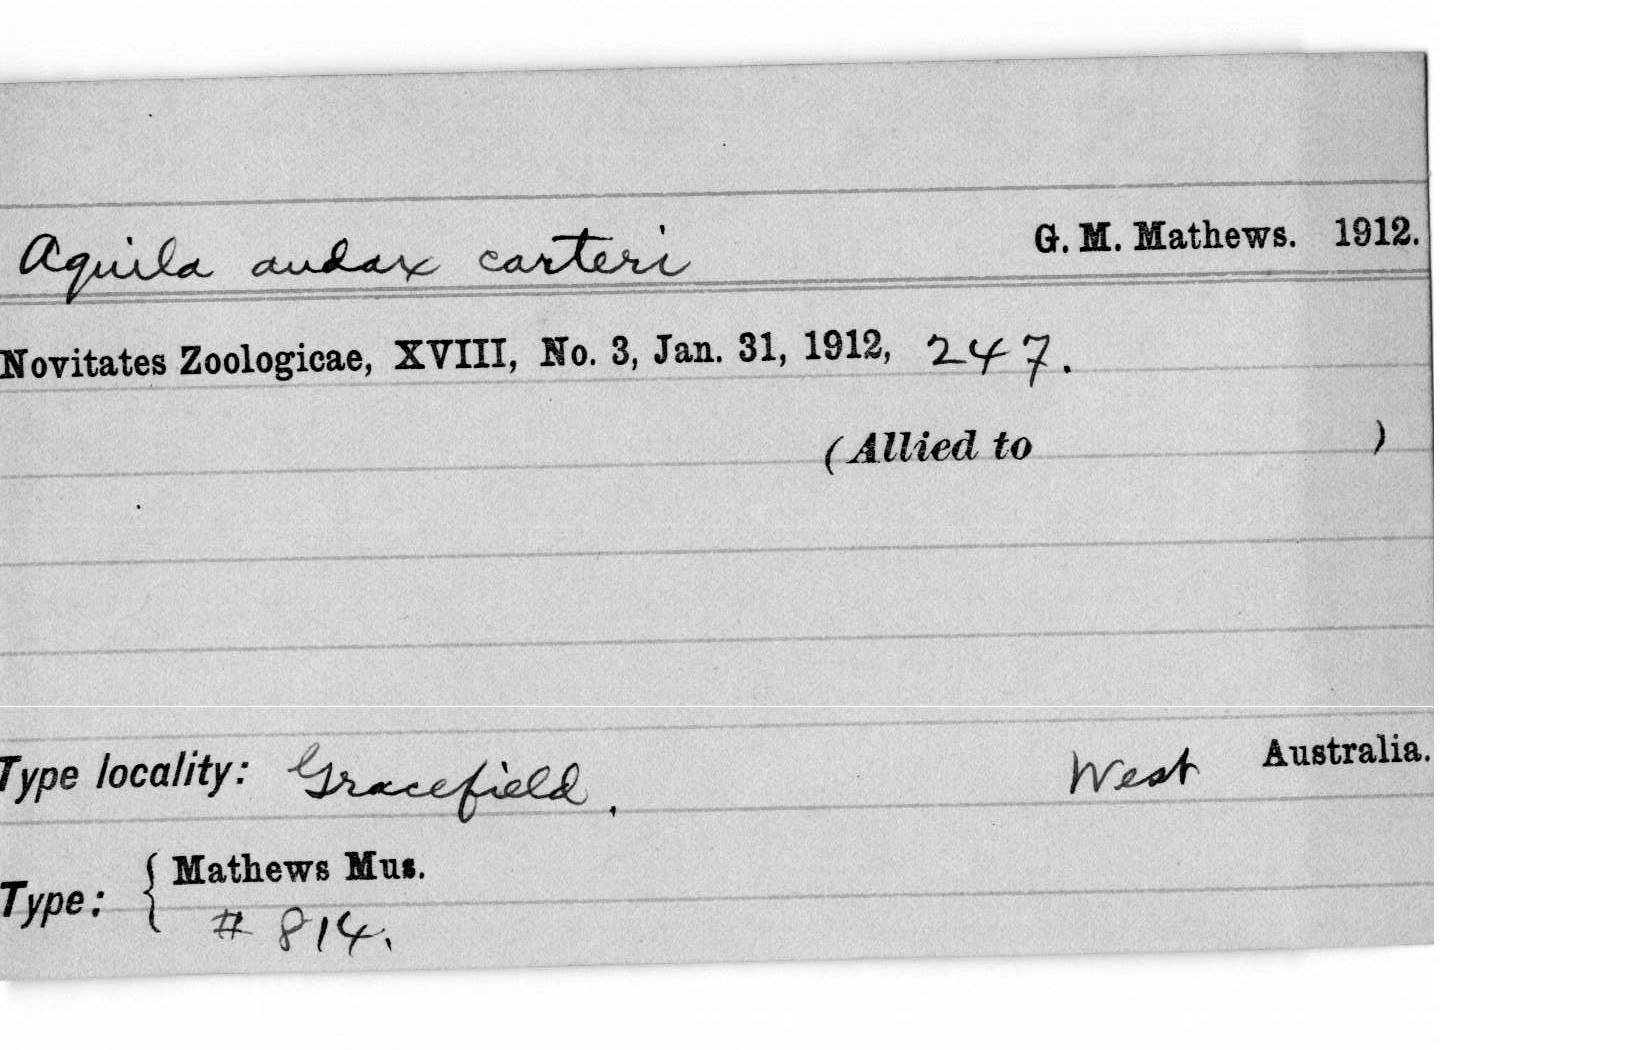 Aquila audax carteri G. M. Mathews. 1912.
Novitates Zoologicae, XVIII, No. 3, Jan. 31, 1912, 247.
(Allied to )
Type locality: Gracefield, West Australia.
Type: { Mathews Mus.
# 814.